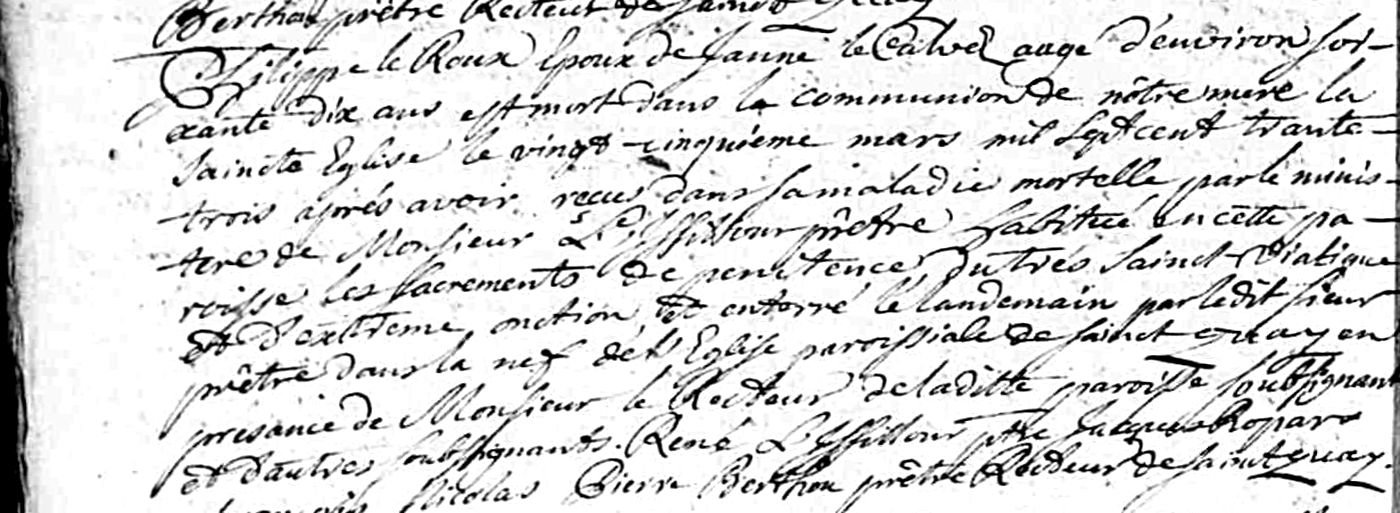 Berthou prêtre Recteur de sainct quay
Philippe le Roux Epoux de Janne le Calvez aage d'environ soi-
xante dix ans est mort dans la communion de nôtre mere la
Saincte Eglise le vingt-cinquiéme mars mil sept cent trante-
trois aprés avoir reçeu dans sa maladie mortelle par le minis-
tere de Monsieur L'Yffillour prêtre habitué en cette pa-
roisse les sacrements de penitence du tres sainct Viatique
et d'extrême onction et enterré le landemain par ledit sieur
prêtre dans la nef de l'Eglise paroissiale de sainct quay en
presance de Monsieur le Recteur de laditte paroisse soubsignant
et d'autres soubsignants. René L'Yffillour ptre Jacques Ropars
Nicolas Pierre Berthou prêtre Recteur de sainct quay.